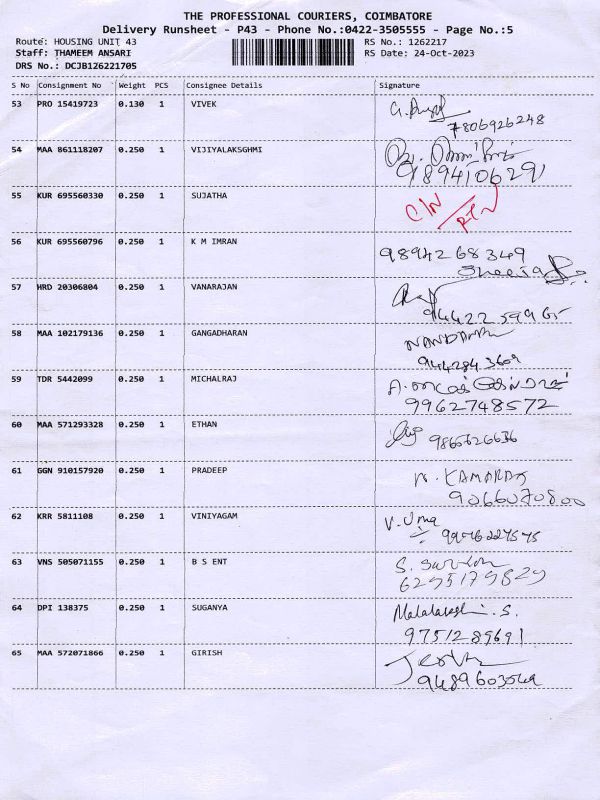 THE PROFESSIONAL COURIERS, COIMBATORE
Delivery Runsheet - P43 - Phone No.:0422-3505555 - Page No.:5
Route: HOUSING UNIT 43 RS No.: 1262217
Staff: THAMEEM ANSARI RS Date: 24-Oct-2023
DRS No.: DCJB126221705
S No Consignment No Weight PCS Consignee Details Signature
53 PRO 15419723 0.130 1 VIVEK
7806926248
54 MAA 861118207 0.250 1 VIJIYALAKSGHMI
9894106291
55 KUR 695560330 0.250 1 SUJATHA
56 KUR 695560796 0.250 1 K M IMRAN 9894268349
57 HRD 20306804 0.250 1 VANARAJAN
58 MAA 102179136 0.250 1 GANGADHARAN
9442843609
59 TDR 5442099 0.250 1 MICHALRAJ
9962748572
60 MAA 571293328 0.250 1 ETHAN
61 GGN 910157920 0.250 1 PRADEEP N. KAMARAJ
9066070800
62 KRR 5811108 0.250 1 VINIYAGAM V. Uma
63 VNS 505071155 0.250 1 B S ENT
6295179829
64 DPI 138375 0.250 1 SUGANYA
9751289691
65 MAA 572071866 0.250 1 GIRISH
9489603049